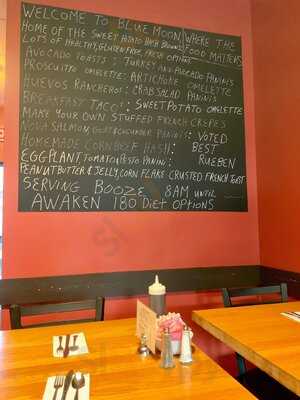 WELCOME TO BLUE MOON, WHERE THE
HOME OF THE SWEET POTATO HASH BROWNS FOOD MATTERS
LOTS OF HEALTHY, GLUTEN FREE, FRESH OPTIONS
AVOCADO TOASTS : TURKEY AND AVOCADO PANINIS
PROSCUITTO OMELETTE : ARTICHOKE OMELETTE
HUEVOS RANCHEROS : CRAB SALAD PANINIS
BREAKFAST TACO : SWEET POTATO OMELETTE
MAKE YOUR OWN STUFFED FRENCH CREPES
NOVA SALMON, GOAT & CUCUMBER PANINIS : VOTED
HOMEMADE CORNBEEF HASH : BEST
EGGPLANT, TOMATO & PESTO PANINI : RUEBEN
PEANUT BUTTER & JELLY, CORN FLAKE CRUSTED FRENCH TOAST
SERVING BOOZE 8AM UNTIL
AWAKEN 180 DIET OPTIONS